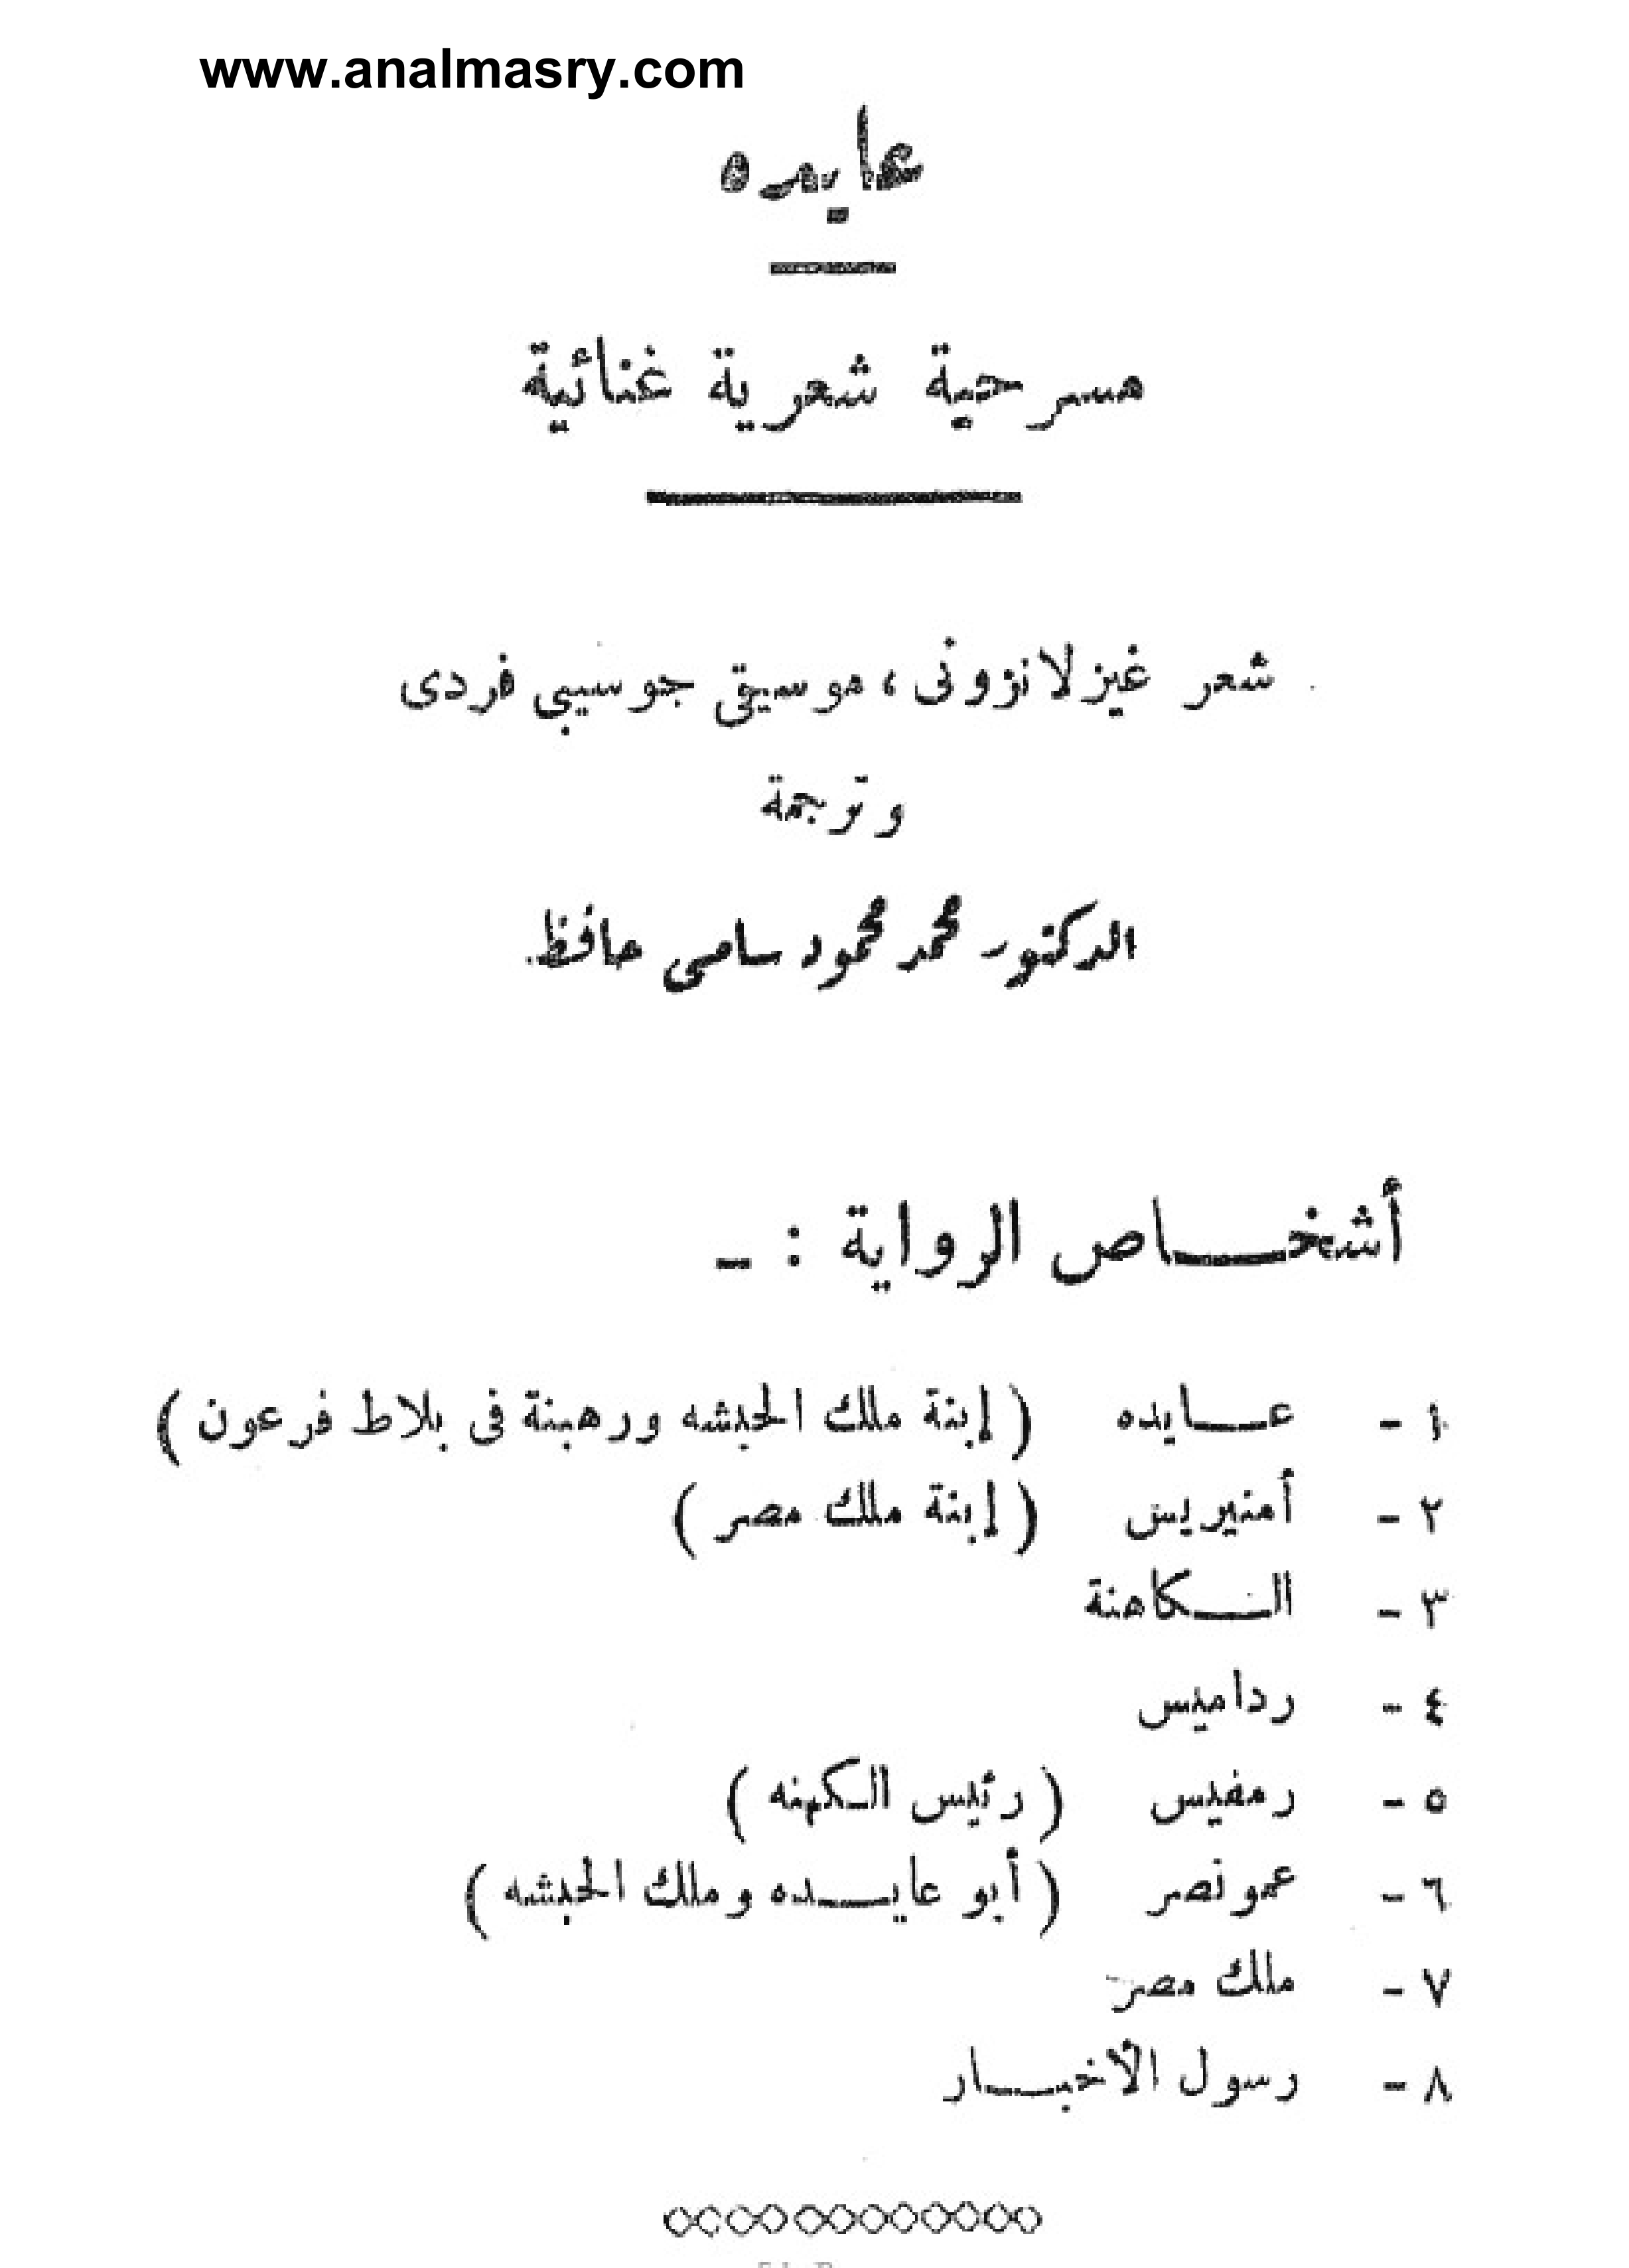 www.analmasry.com
عايده
مسرحية شعرية غنائية
شعر غيزلانزونى ، موسيقى جوسيبى فردى
وترجمة
الدكتور محمد محمود سامى حافظ
أشخاص الرواية : -
١ - عايده ( إبنة ملك الحبشه ورهينة فى بلاط فرعون )
٢ - أمنيريس ( إبنة ملك مصر )
٣ - الكاهنة
٤ - رداميس
٥ - رمفيس ( رئيس الكهنه )
٦ - عمونصر ( أبو عايده وملك الحبشه )
٧ - ملك مصر
٨ - رسول الأخبار